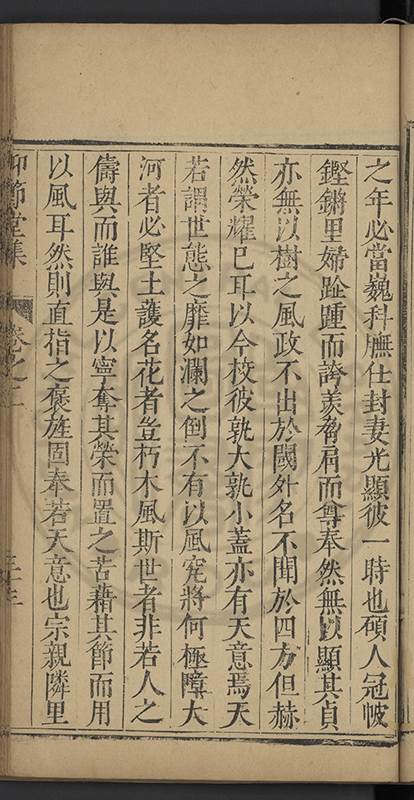 之年必當巍科膴仕封妻尤顯彼一時也碩人冠帔
鏗鏘里婦跐踵而誇羨脅肩而尊奉然無以顯其貞
亦無以樹之風政不出於閫外名不聞於四方但赫
然榮耀已耳以今校彼孰大孰小蓋亦有天意焉天
若謂世態之靡如瀾之倒不有以風究將何極障大
河者必堅土護名花者豈朽木風斯世者非若人之
儔與而誰與是以寧奪其榮而置之苦藉其節而用
以風耳然則直指之褒旌固奉若天意也宗親隣里
仰節堂集
卷之二